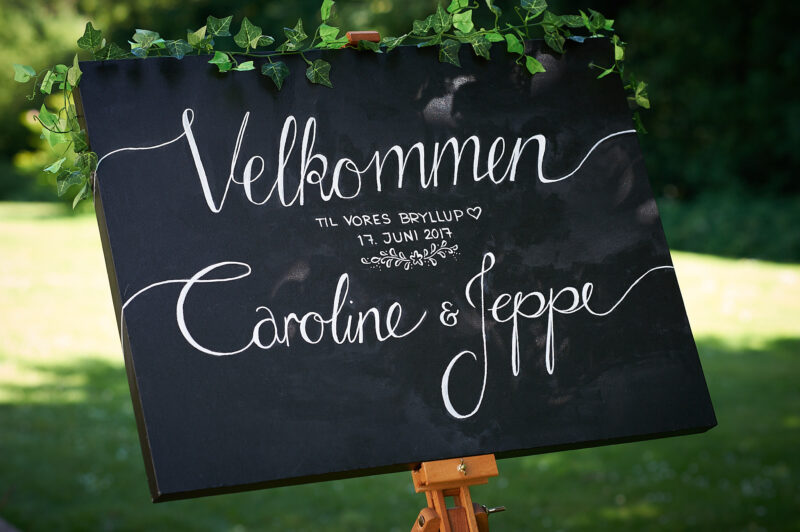 Velkommen
TIL VORES BRYLLUP♡
17. JUNI 2017
Caroline & Jeppe